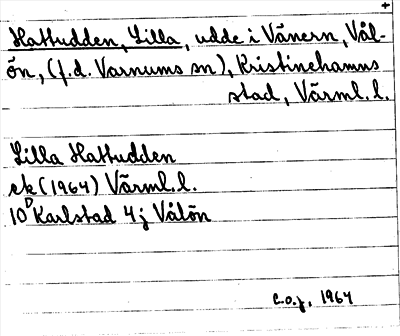 +
Hattudden, Lilla, udde i Vänern, Vål-
ön, (f.d. Varnums sn), Kristinehamns
stad, Värml. l.
Lilla Hattudden
ek (1964) Värml. l.
10D Karlstad 4j Vålön
C.o.j., 1964